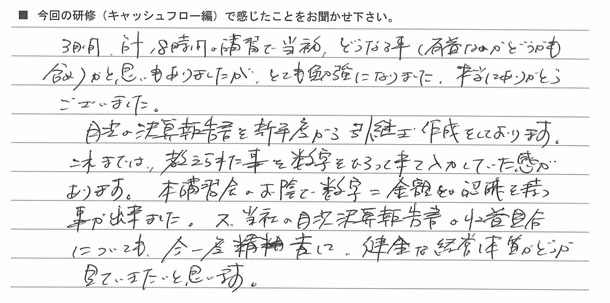 ■ 今回の研修（キャッシュフロー編）で感じたことをお聞かせ下さい。
3日間、計18時間の講習で当初、どうなる事（有益なのかどうかも
含め）かと思いもありましたが、とても勉強になりました。本当にありがとう
ございました。
月次の決算報告書を新年度から引継ぎ作成をしております。
これまでは、教えられた事を数字をひろって来て入力していた感が
あります。本講習会のお陰で数字＝金額を認識を持つ
事が出来ました。又、当社の月次決算報告書の収益具合
についても、今一度精査して、健全な経営体質かどうか
見ていきたいと思います。